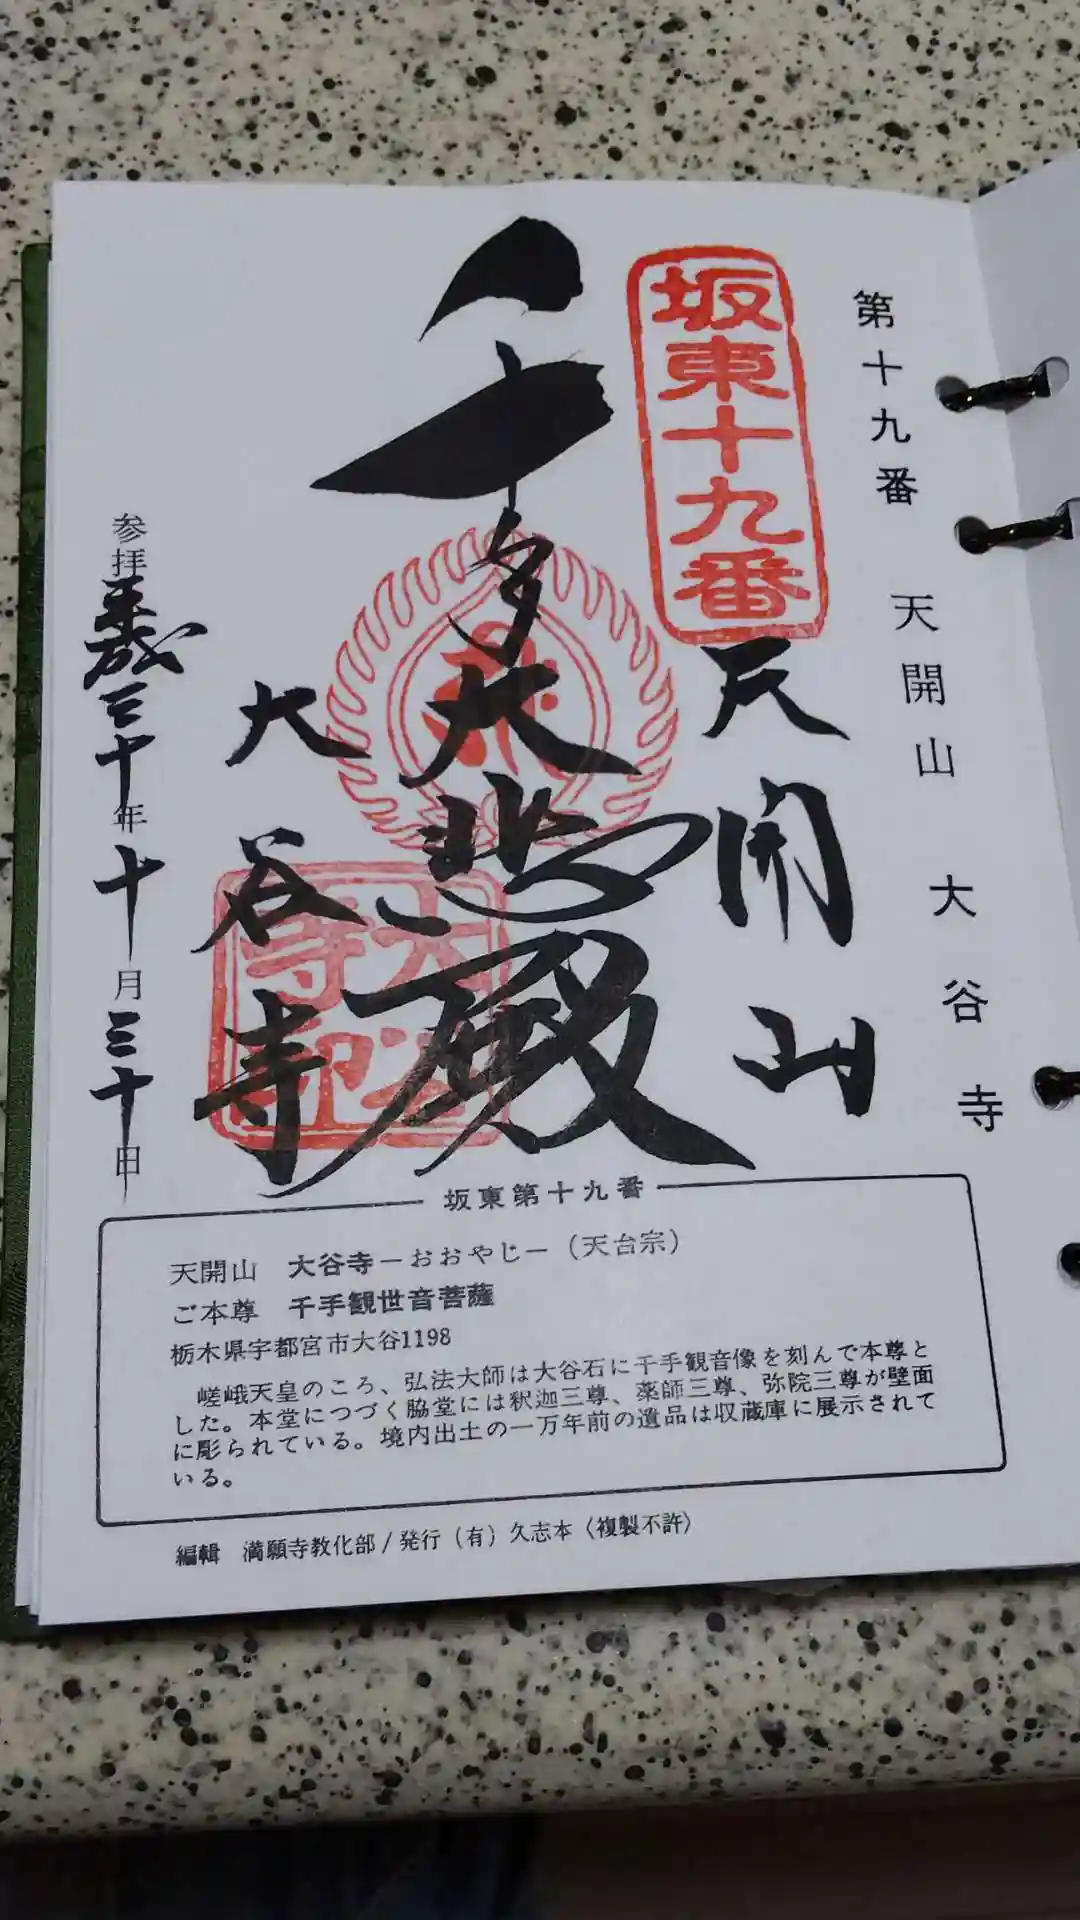 第十九番 天開山 大谷寺
坂東十九番
天開山
千手大悲殿
大谷寺
大谷寺印
参拝平成三十年十月三十日
坂東第十九番
天開山 大谷寺－おおやじ－（天台宗）
ご本尊 千手観世音菩薩
栃木県宇都宮市大谷1198
嵯峨天皇のころ、弘法大師は大谷石に千手観音像を刻んで本尊と
した。本堂につづく脇堂には釈迦三尊、薬師三尊、弥陀三尊が壁面
に彫られている。境内出土の一万年前の遺品は収蔵庫に展示されて
いる。
編輯 満願寺教化部/発行（有）久志本〈複製不許〉